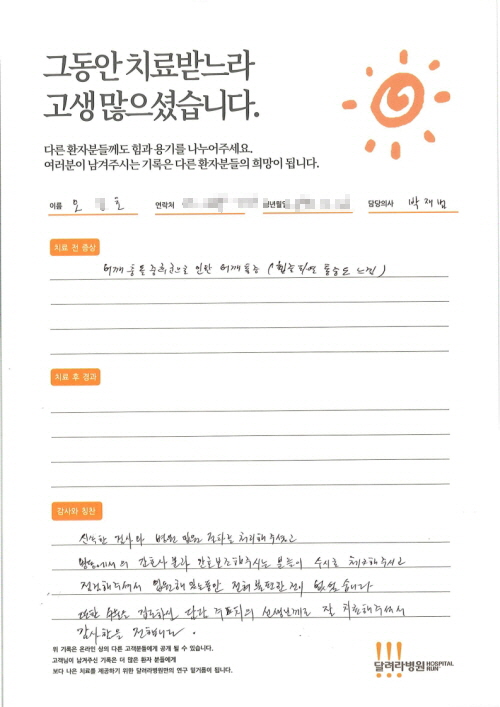 그동안 치료받느라
고생 많으셨습니다.
다른 환자분들께도 힘과 용기를 나누어주세요.
여러분이 남겨주시는 기록은 다른 환자분들의 희망이 됩니다.
이름 오 호 연락처 생년월일 담당의사 박재범
치료 전 증상
어깨 충돌증후군으로 인한 어깨통증
치료 후 경과
감사와 칭찬
신속한 검사와 병원 입원 절차를 처리해주셨고
병동에서의 간호사분과 간호보조해주시는 분들이 수시로 체크해주시고
점검해주셔서 입원해 있는동안 전혀 불편한 점이 없었습니다
또한 수술을 집도하신 담당 주치의 선생님께도 잘 치료해주셔서
감사함을 전합니다.
위 기록은 온라인 상의 다른 고객분들에게 공개 될 수 있습니다.
고객님이 남겨주신 기록은 더 많은 환자 분들에게
보다 나은 치료를 제공하기 위한 달려라병원만의 연구 밑거름이 됩니다.
달려라병원 HOSPITAL RUN